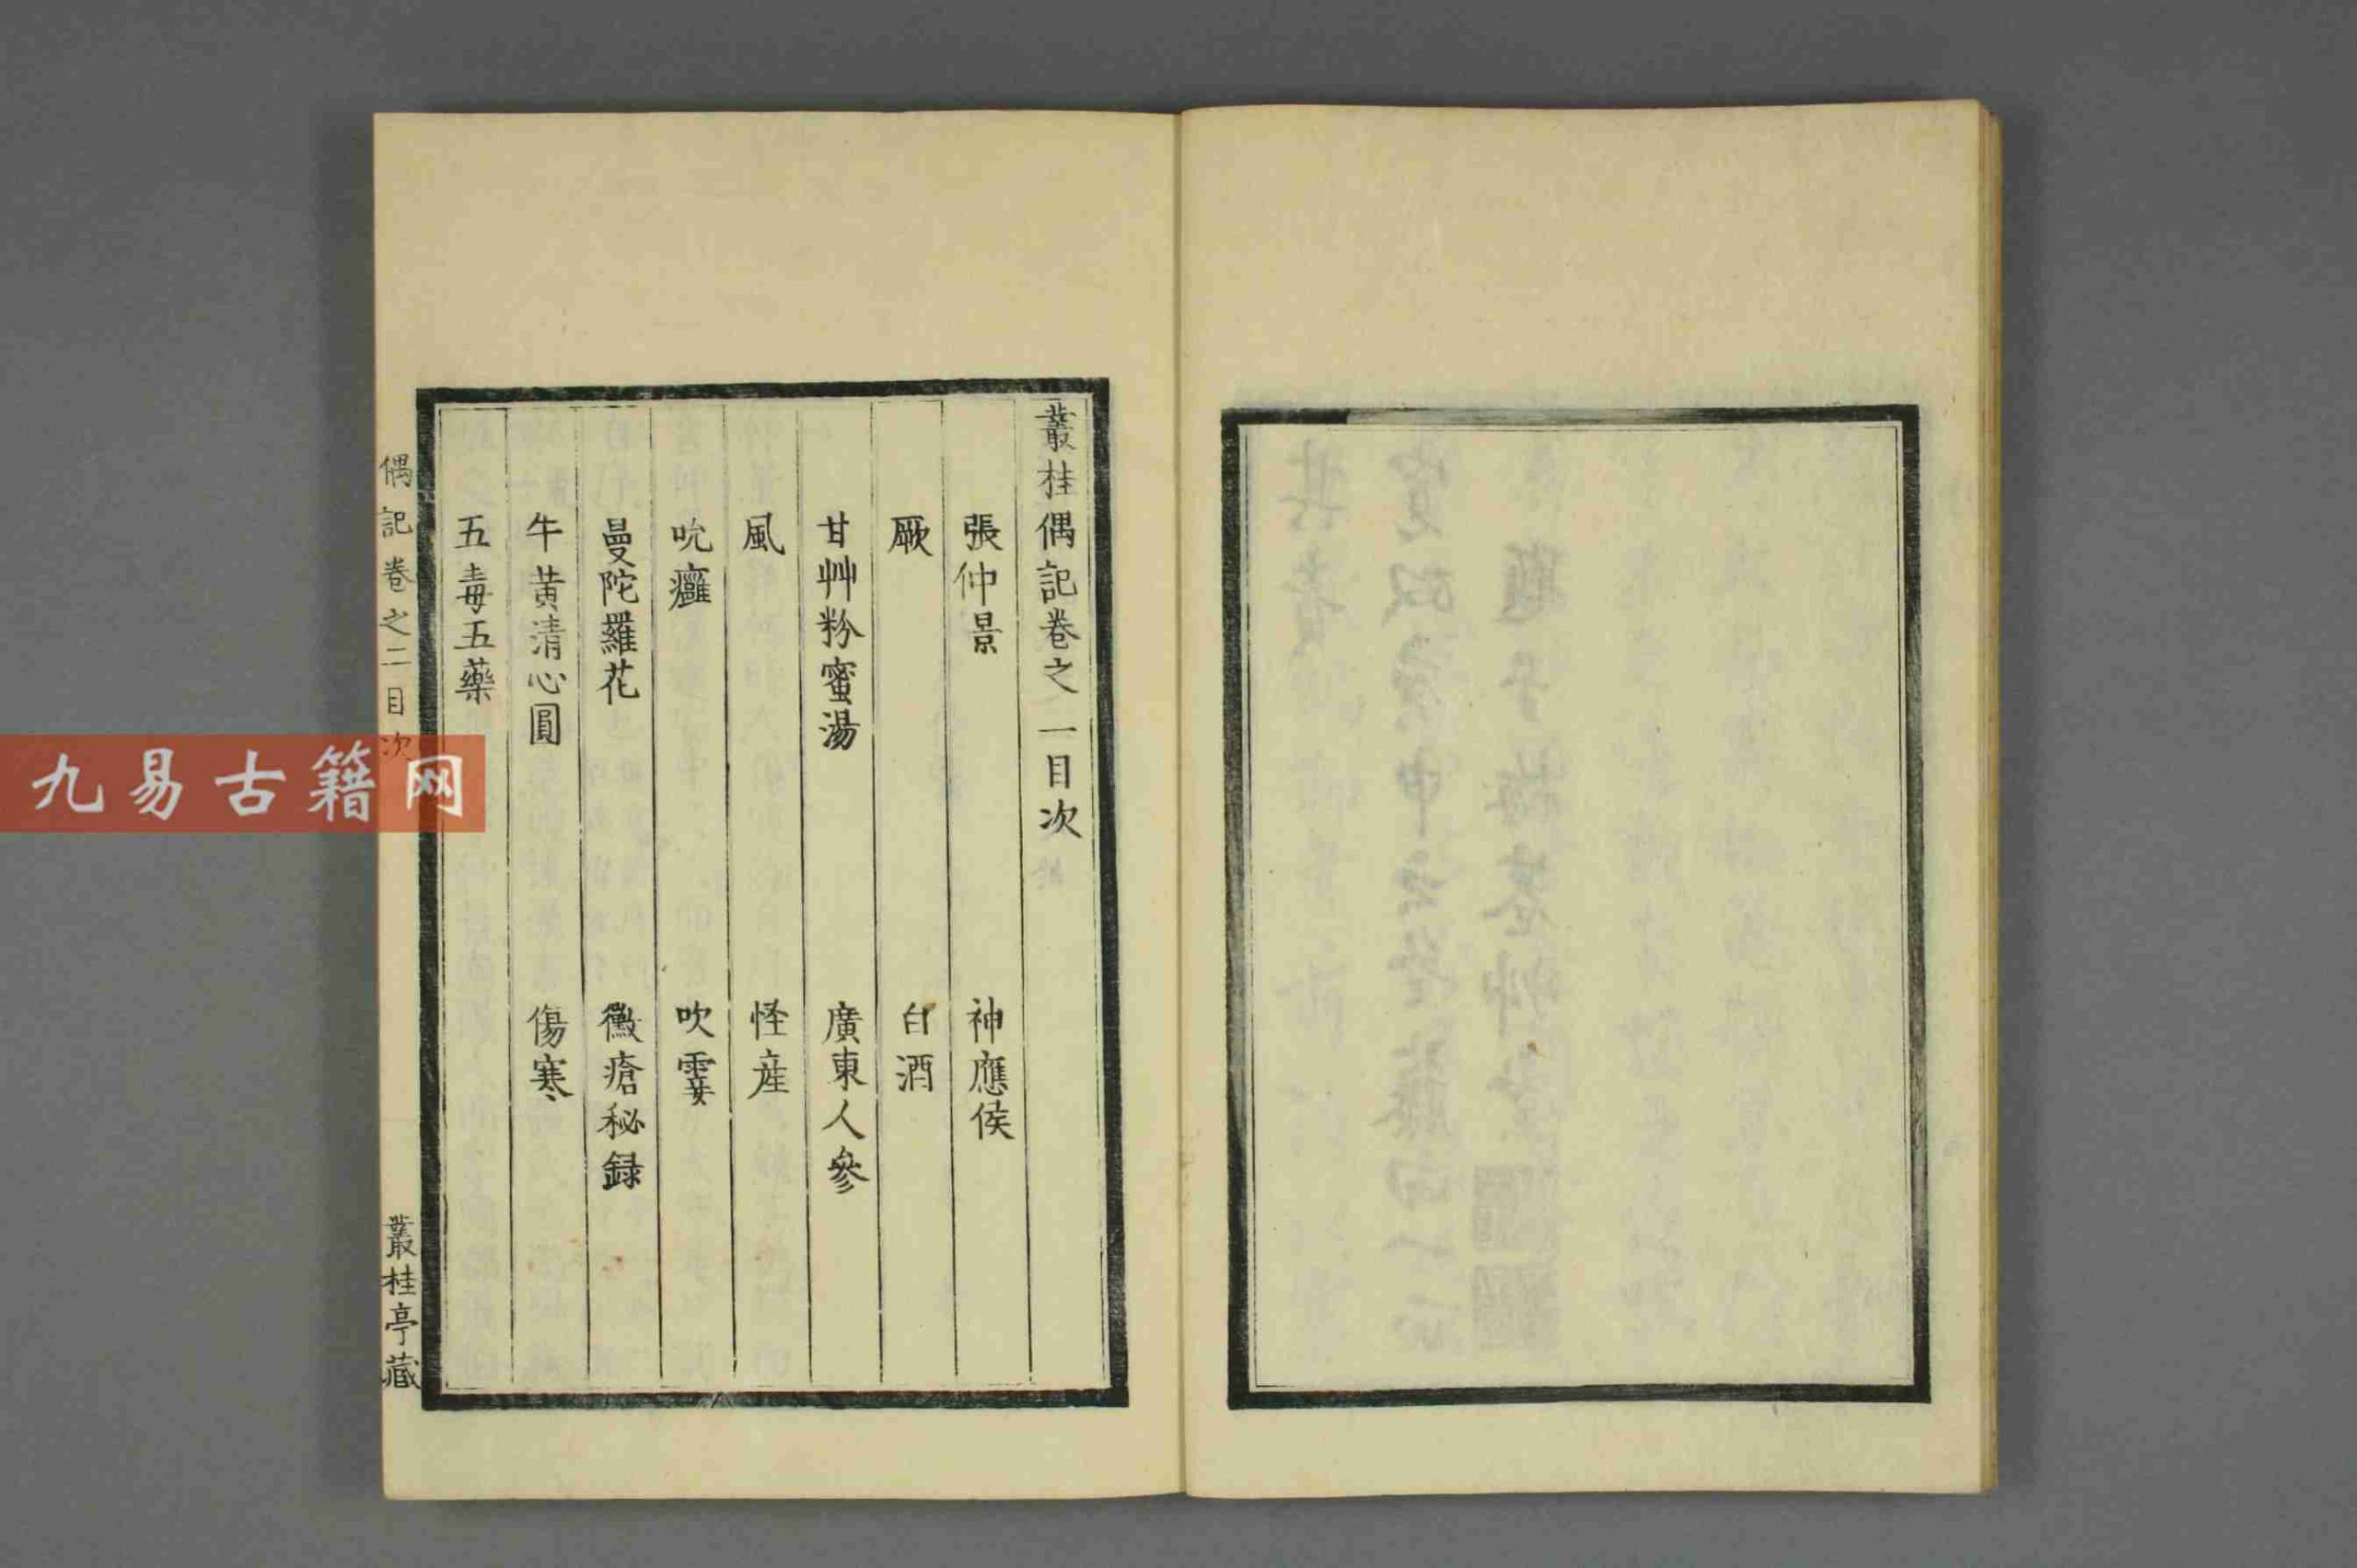 叢桂偶記卷之一目次
張仲景　神應侯
厥　白酒
甘艸粉蜜湯　廣東人參
風　怪産
吮癰　吹霎
曼陀羅花　黴瘡秘録
牛黄清心圓　傷寒
五毒五藥
偶記卷之二目次　叢桂亭藏
九易古籍网